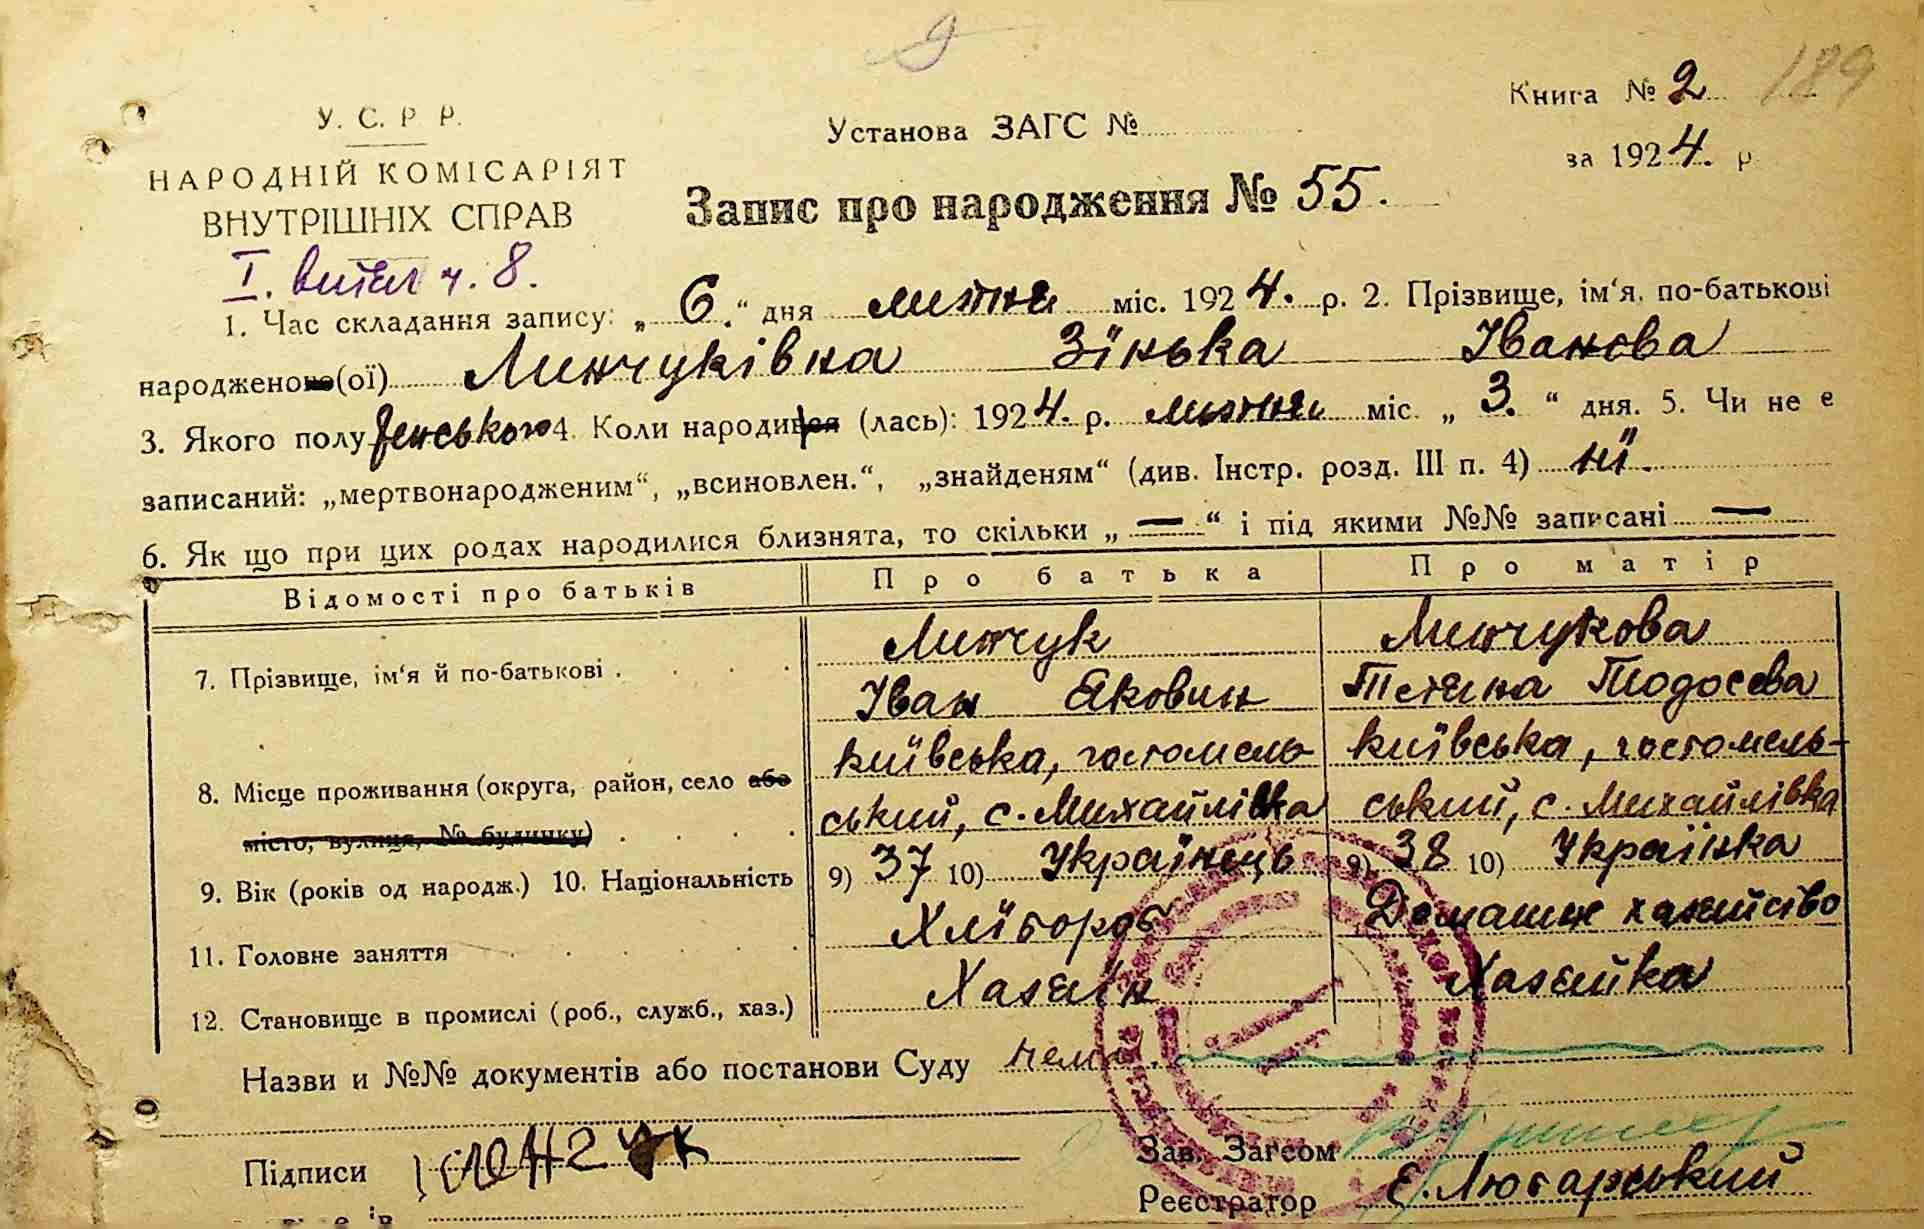 189
Книга № 2
У. С. Р Р.
Установа ЗАГС №
за 1924. р
НАРОДНІЙ КОМІСАРІЯТ
ВНУТРІШНІХ СПРАВ
Запис про народження № 55.
I. витяг ч. 8.
1. Час складання запису: „6.“ дня липня міс. 1924. р. 2. Прізвище, ім‘я, по-батькові
народженого(ої) Зїнька Іванова
3. Якого полу женського 4. Коли народився (лась): 1924. р. липня міс. „3.“ дня. 5. Чи не є
записаний: „мертвонародженим“, „всиновлен.“, „знайденям“ (див. Інстр. розд. III п. 4) нї.
6. Як що при цих родах народилися близнята, то скільки „—“ і під якими №№ записані —
Відомості про батьків Про батька Про матір
7. Прізвище, ім‘я й по-батькові
Іван Яковин Тетяна Тодосєва
8. Місце проживання (округа, район, село або
місто, вулиця, № будинку)
київська, гостомель- київська, гостомель-
ський, с. Михайлівка ський, с. Михайлівка
9. Вік (років од народж.) 10. Національність 9) 37 10) Українець 9) 38 10) Українка
11. Головне заняття Хлїбороб Домашнє хазяйство
12. Становище в промислі (роб., служб., хаз.) Хазяїн Хазяйка
Назви и №№ документів або постанови Суду нема.
Підписи Зав. Загсом
Реєстратор Є. Лютарський